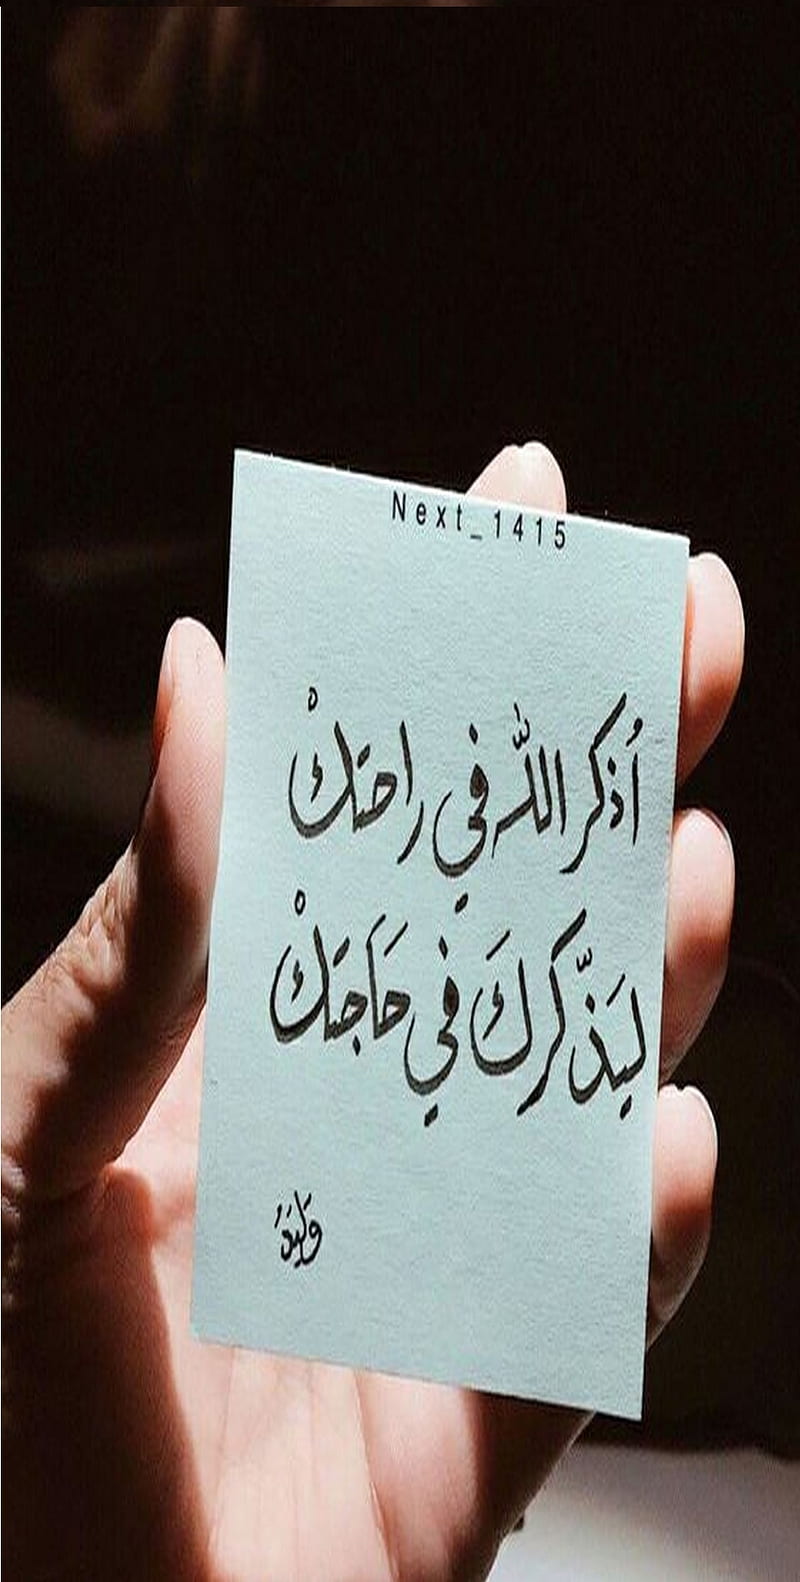 Next_1415
أُذكر اللّٰه في راحتكْ
ليَذّكركَ في حَاجتكْ
وَليَدُ